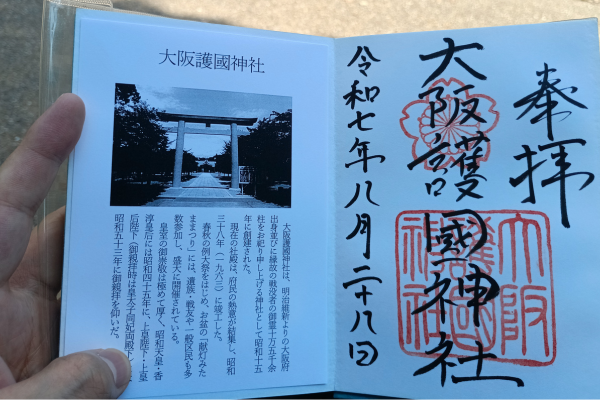 奉拝
大阪護國神社
大阪
護國
神社
令和七年八月二十八日
大阪護國神社
大阪護國神社は、明治維新よりの大阪府
出身並びに縁故の戦没者の御霊十万五千余
柱をお祀り申し上げる神社として昭和十五
年に創建された。
現在の社殿は、府民の熱意が結集し、昭和
三十八年（一九六三）に竣工した。
春秋の例大祭をはじめ、お盆の「献灯みた
ままつり」には、遺族・戦友や一般区民も多
数参加し、盛大に開催されている。
皇室の御崇敬は極めて厚く、昭和天皇・香
淳皇后には昭和四十五年に、上皇陛下・上皇
后陛下（御親拝時は皇太子同妃両殿下
昭和五十三年に御親拝を仰いだ。